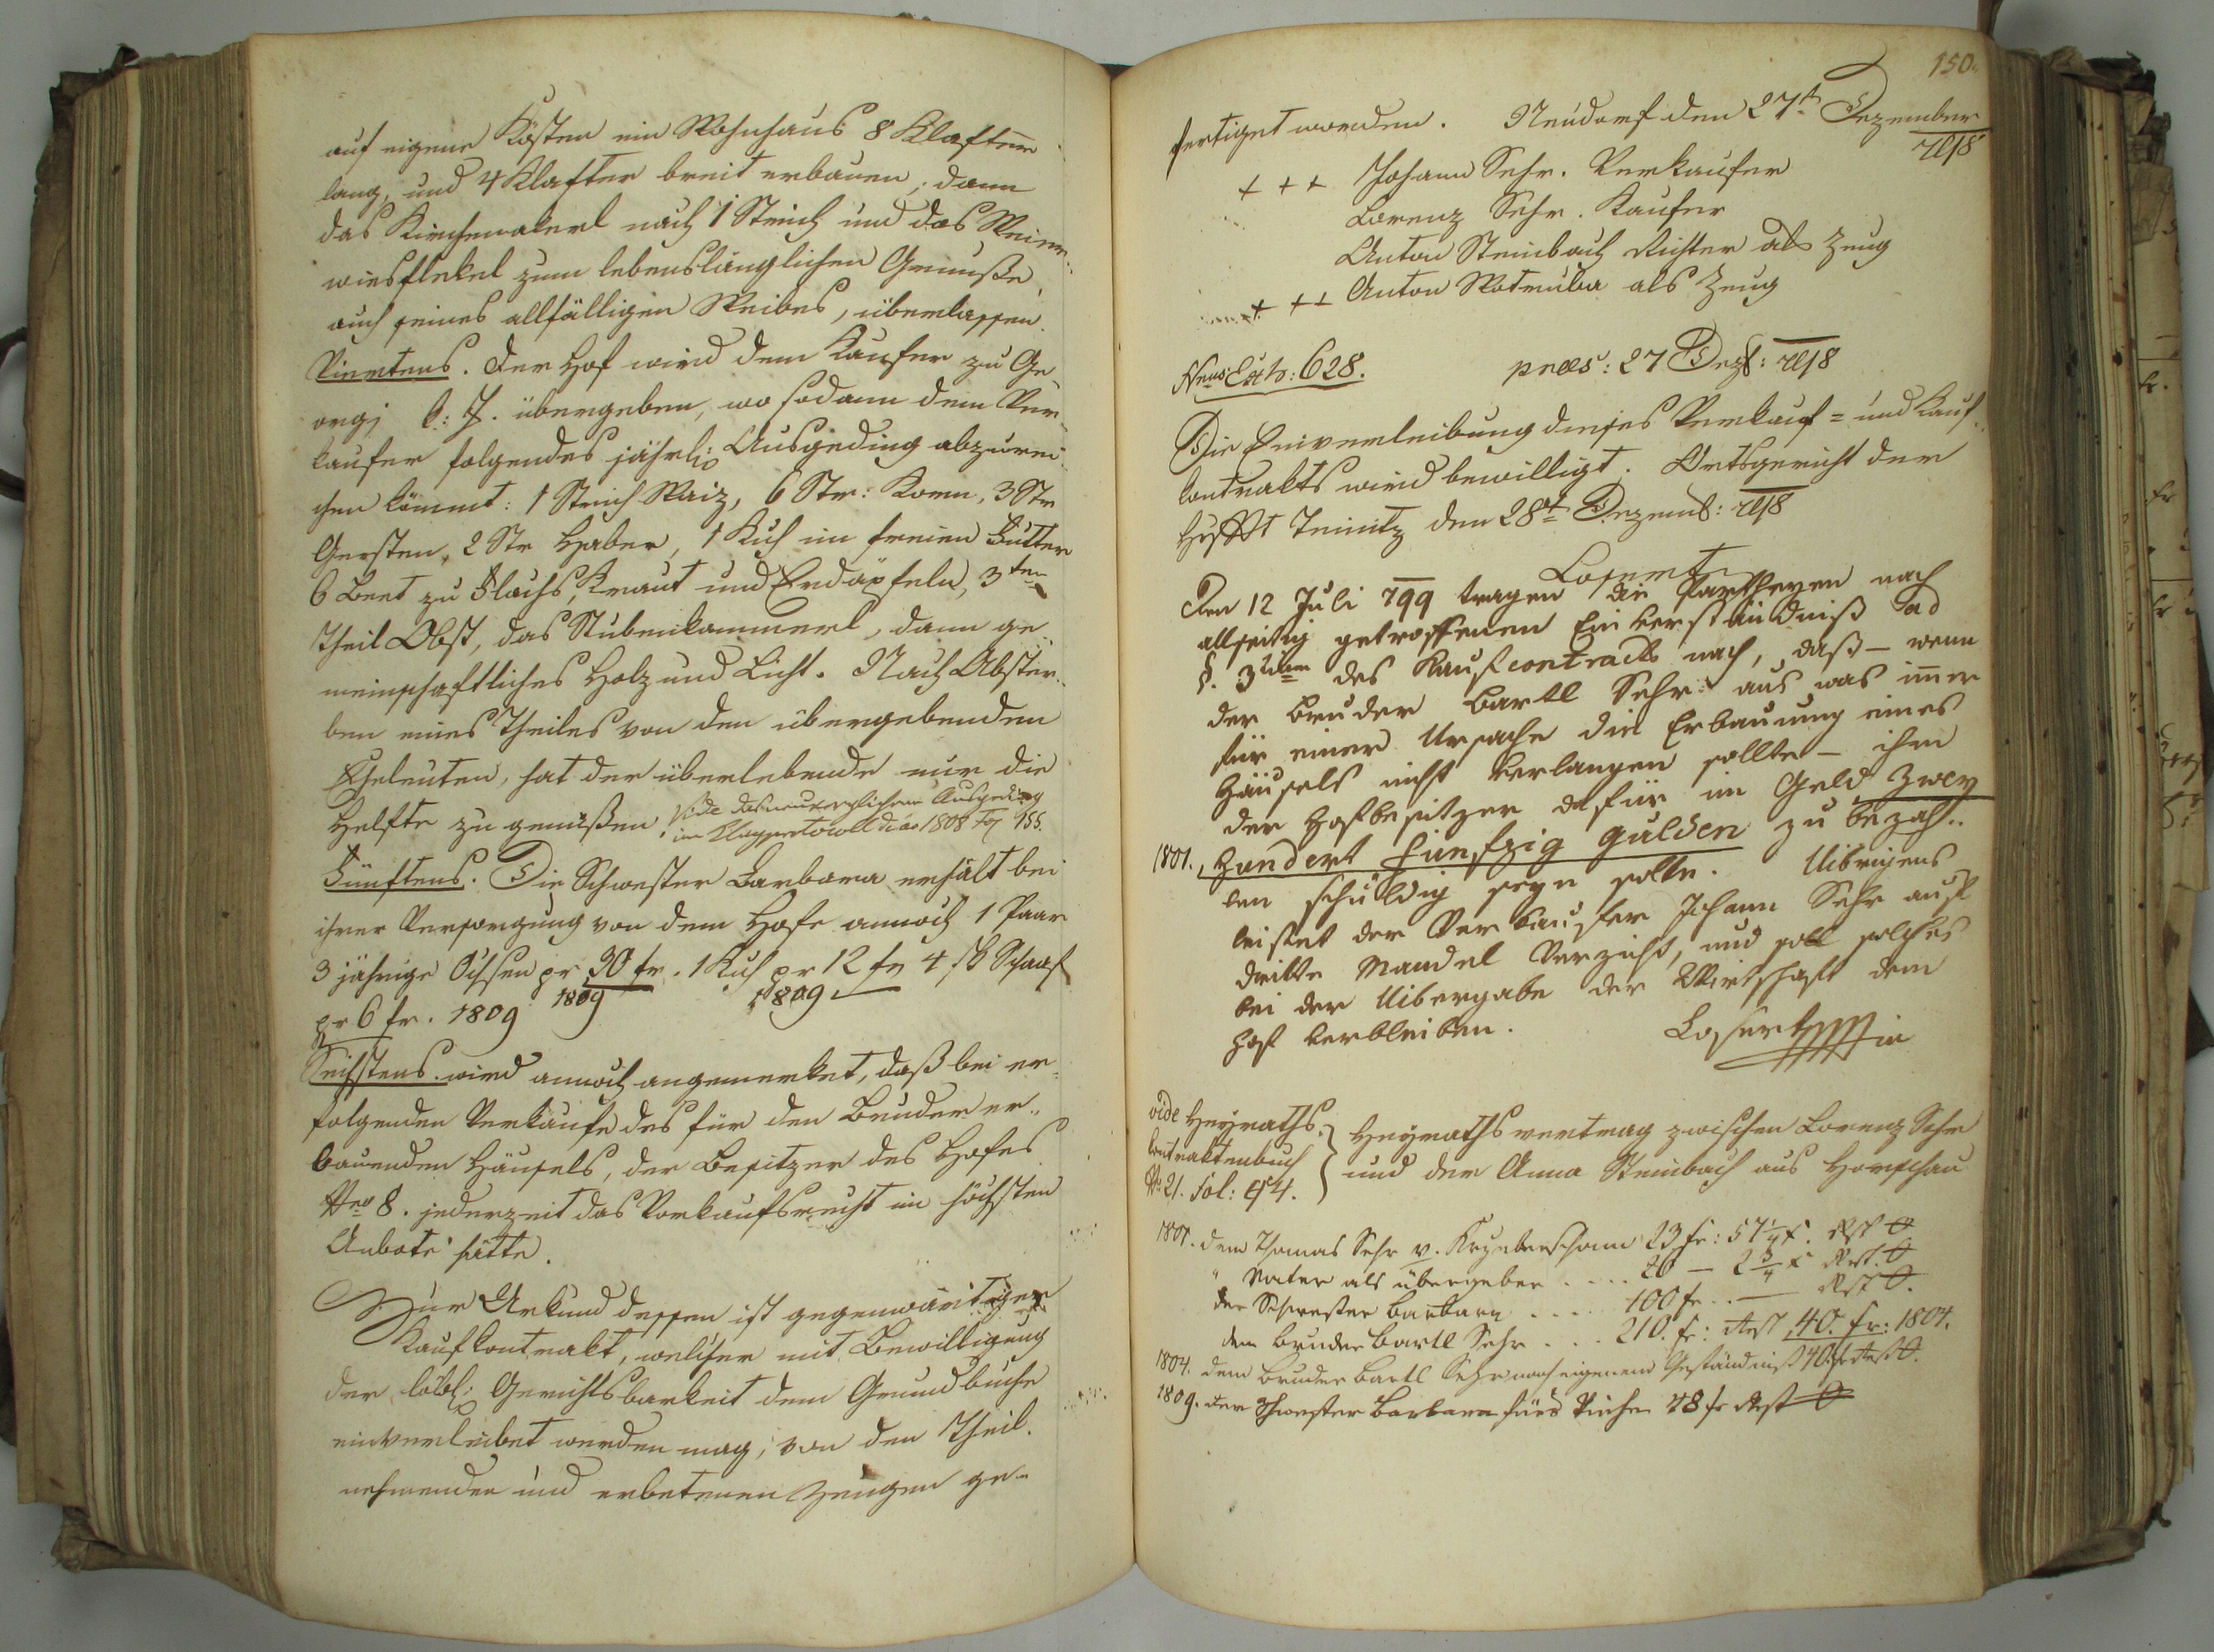 auf eigene Kösten ein Wohnhaus 8 Klaftern
lang, und 4 Klafter breit erbauen; dann
das Kirchenakerl nach 1 Strich und das
wiesflekel zum lebenslänglichen Genuße,
auch seines allfälligen Weibes, überlassen.
Viertens. Der Hof wird dem Kaufer zu Ge
orgj k: J. übergeben, wo sodann dem Ver
kaufer folgendes jährl: Ausgeding abzurei
chen kömmt: 1 Strich Waiz, 6 Str: Korn, 3 Str
Gersten, 2 Str Haber, 1 Kuh im freien Futter
6 Beet zu Flachs, Kraut und Erdäpfeln, 3ten
Theil Obst, das Stubenkammerl, dann ge
meinschaftliches Holz und Licht. Nach Abster
ben eines Theiles von den übergebenden
Eheleuten, hat der überlebende nur die
Helfte zu genußen. Vide das Ausgeding
im 1808 Fol 155.
Fünftens. Die Schwester Barbara erhält bei
ihrer Versorgung von dem Hofe annoch 1 Paar
3 jährige Ochsen pr 30 fr. 1 Kuh pr 12 fr 4 Stk Schaaf
pr 6 fr. 1809 1809 1809
Sechstens. wird annoch angemerket, daß bei er-
folgenden Verkaufe des für den Bruder er-
bauenden Häusels, der Besitzer des Hofes
Nro 8. jederzeit das Vorkaufsrecht im höchsten
Anbote hätte.
Zur Urkund dessen ist gegenwärtiger
Kaufkontrakt, welcher mit Bewilligung
der löbl: Gerichtsbarkeit dem Grundbuche
einverleibet werden mag, von den Theil-
nehmenden und erbetenen Zeugen ge-
150.
fertiget worden. Neudorf den 27t Dezember
798
+ + + Johann Sehr. Verkaufer
Lorenz Sehr. Kaufer
Anton Steinbach Richter als Zeug
+ + + Anton Wotruba als Zeug
Nrus Exh: 628. praes: 27 Dezb: 798
Die Einverleibung dieses Verkauf- und Kauf
kontrakts wird bewilligt. Ortsgericht der
Hrschft Teinitz den 28t Dezemb: 798
Losert
Den 12 Juli 799 tragen die Partheyen nach
allseitig getroffenen Einverständniß ad
§. 3tium des Kaufcontracts nach, daß – wenn
der Bruder Bartl Sehr aus was imer
für einer Ursache die Erbauung eines
Häusels nicht verlangen sollte – ihm
der Hofbesitzer dafür im Geld Zwey
1801. Hundert Funfzig Gulden zu bezah-
len schuldig seyn solle. Uibrigens
leistet der Verkaufer Johann Sehr auf
dritte Mandel Verzicht, und soll solches
bei der Uibergabe der Wirtschaft dem
Hof verbleiben. Losert
vide Heyraths
kontraktenbuch
N: 21. fol: 94.
Heyrathsvertrag zwischen Lorenz Sehr
und der Anna Steinbach aus Horschau
1801. dem Thomas Sehr v. 23 fr: 57 1/4 x. Rest 0
" Vater als übergeber .... 26 – 2 3/4 x Rest. 0
der Schwester Barbara .... 100 fr.. — Rest 0.
dem Bruder Bartl Sehr ... 210. fr: Rest 40. fr: 1804.
1804. dem Bruder Bartl Sehr nach eigenem Geständniß 40 fr Rest 0.
1809. der Schwester Barbara fürs Viehe 48 fr Rest 0